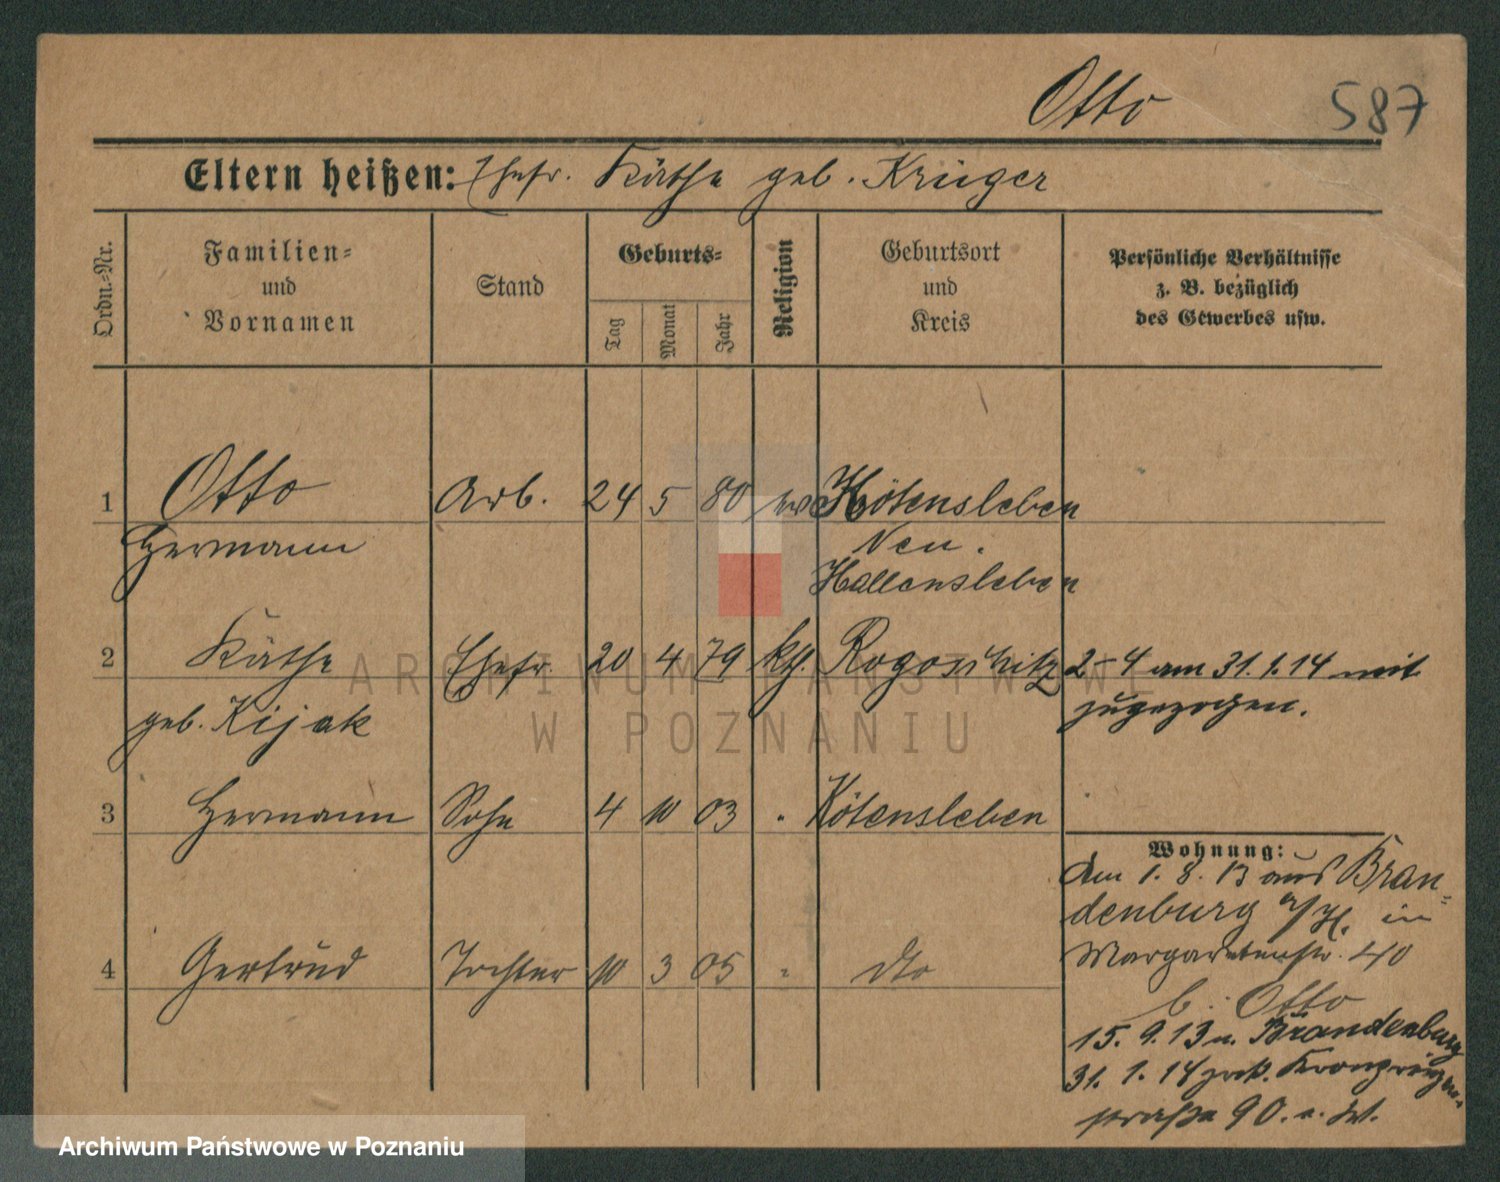 Otto 587
Eltern heißen: Ehefr. Käthe geb. Krüger
Ordn.-Nr.
Familien-
und
Vornamen
Stand
Geburts-
Tag
Monat
Jahr
Religion
Geburtsort
und
Kreis
Persönliche Verhältnisse
z. B. bezüglich
des Gewerbes usw.
1 Otto Arb. 24 5 80 Hötensleben
Hermann Neu.
Hallensleben
2 Käthe Ehefr. 20 4 79 kth. Rogoschitz 2-4 am 31.1.14 mit
geb. Kijak zugezogen.
3 Hermann Sohn 4 10 03 " Hötensleben
Wohnung:
Am 1. 8. 13 aus Bran-
denburg a/H. in
4 Gertrud Tochter 10 3 05 " dto Margaretenstr. 40
b. Otto
15. 9. 13 n. Brandenburg
31. 1. 14 zrck. Kronprinzen-
straße 90. a. W.
ARCHIWUM PAŃSTWOWE
W POZNANIU
Archiwum Państwowe w Poznaniu